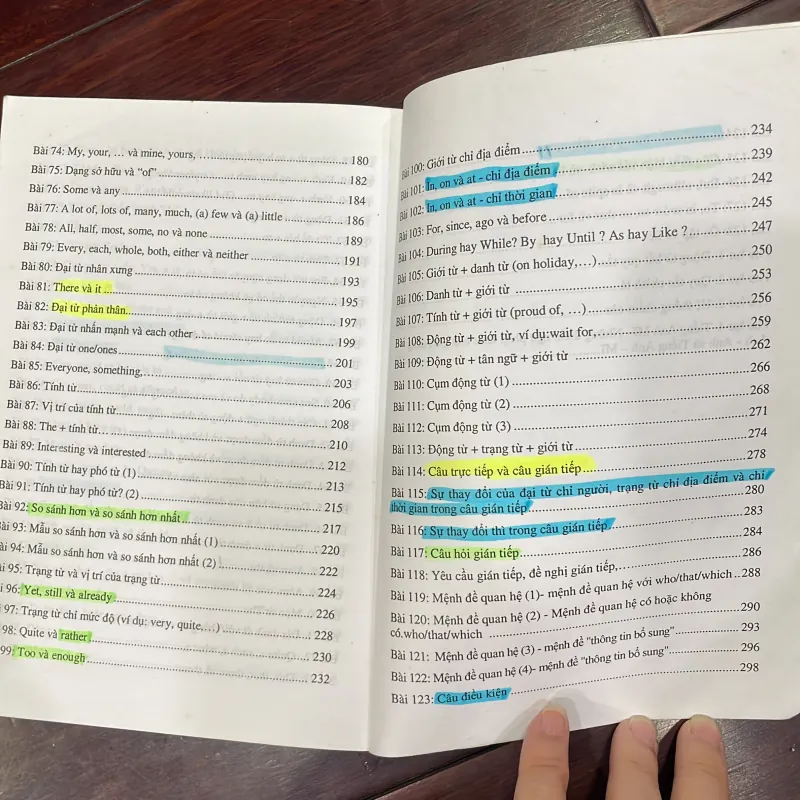 Bài 74: My, your, … và mine, yours, ........ 180
Bài 75: Dạng sở hữu và “of” ........ 182
Bài 76: Some và any ........ 184
Bài 77: A lot of, lots of, many, much, (a) few và (a) little ........ 186
Bài 78: All, half, most, some, no và none ........ 189
Bài 79: Every, each, whole, both, either và neither ........ 191
Bài 80: Đại từ nhân xưng ........ 193
Bài 81: There và it ........ 195
Bài 82: Đại từ phản thân ........ 197
Bài 83: Đại từ nhấn mạnh và each other ........ 199
Bài 84: Đại từ one/ones ........ 201
Bài 85: Everyone, something, ........ 203
Bài 86: Tính từ ........ 206
Bài 87: Vị trí của tính từ ........ 208
Bài 88: The + tính từ ........ 210
Bài 89: Interesting và interested ........ 212
Bài 90: Tính từ hay phó từ (1) ........ 213
Bài 91: Tính từ hay phó từ? (2) ........ 215
Bài 92: So sánh hơn và so sánh hơn nhất ........ 217
ài 93: Mẫu so sánh hơn và so sánh hơn nhất (1) ........ 220
ài 94: Mẫu so sánh hơn và so sánh hơn nhất (2) ........ 222
ài 95: Trạng từ và vị trí của trạng từ ........ 224
i 96: Yet, still và already ........ 226
97: Trạng từ chỉ mức độ (ví dụ: very, quite,…) ........ 228
98: Quite và rather ........ 230
99: Too và enough ........ 232
Bài 100: Giới từ chỉ địa điểm ........ 234
Bài 101: In, on và at - chỉ địa điểm ........ 239
Bài 102: In, on và at - chỉ thời gian ........ 242
Bài 103: For, since, ago và before ........ 245
Bài 104: During hay While? By hay Until ? As hay Like ? ........ 247
Bài 105: Giới từ + danh từ (on holiday,…) ........ 250
Bài 106: Danh từ + giới từ ........ 253
Bài 107: Tính từ + giới từ (proud of, …) ........ 256
Bài 108: Động từ + giới từ, ví dụ:wait for, ........ 259
Bài 109: Động từ + tân ngữ + giới từ ........ 262
Bài 110: Cụm động từ (1) ........ 266
Bài 111: Cụm động từ (2) ........ 268
Bài 112: Cụm động từ (3) ........ 271
Bài 113: Động từ + trạng từ + giới từ ........ 274
Bài 114: Câu trực tiếp và câu gián tiếp ........ 278
Bài 115: Sự thay đổi của đại từ chỉ người, trạng từ chỉ địa điểm và chỉ
thời gian trong câu gián tiếp ........ 280
Bài 116: Sự thay đổi thì trong câu gián tiếp ........ 283
Bài 117: Câu hỏi gián tiếp ........ 284
Bài 118: Yêu cầu gián tiếp, đề nghị gián tiếp, ........ 286
Bài 119: Mệnh đề quan hệ (1)- mệnh đề quan hệ với who/that/which .. 288
Bài 120: Mệnh đề quan hệ (2) - Mệnh đề quan hệ có hoặc không
có.who/that/which ........ 290
Bài 121: Mệnh đề quan hệ (3) - mệnh đề "thông tin bổ sung" ........ 293
Bài 122: Mệnh đề quan hệ (4)- mệnh đề "thông tin bổ sung" ........ 296
Bài 123: Câu điều kiện ........ 298